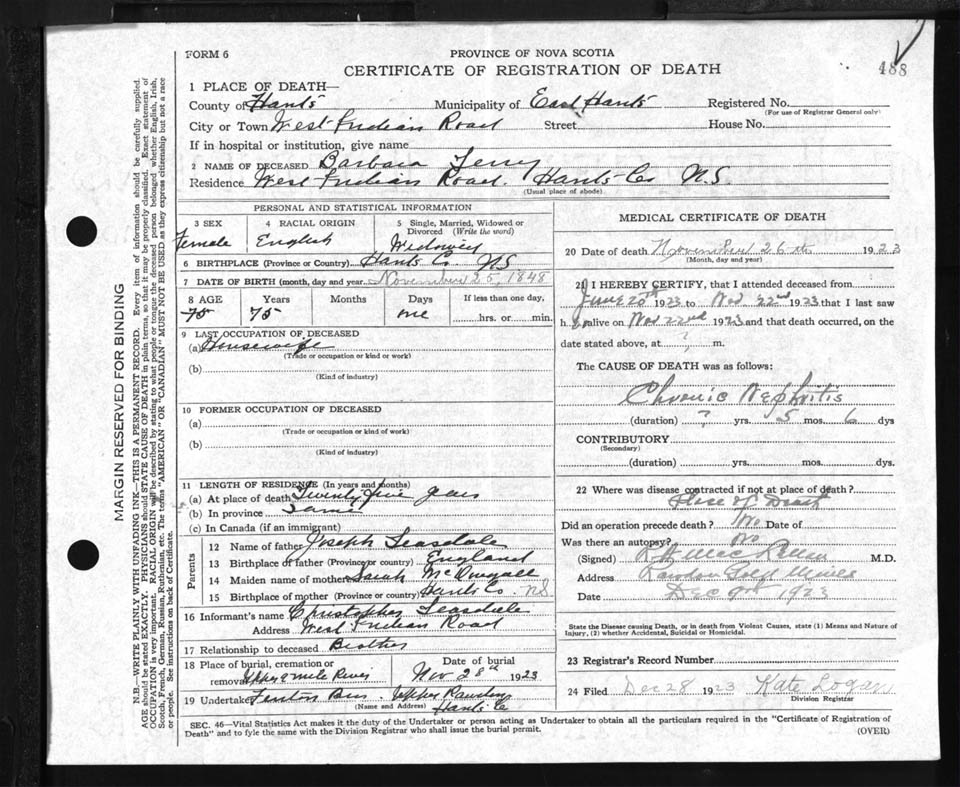 488
FORM 6
PROVINCE OF NOVA SCOTIA
CERTIFICATE OF REGISTRATION OF DEATH
1 PLACE OF DEATH—
County of Hants Municipality of East Hants Registered No.
(For use of Registrar General only)
City or Town West Indian Road Street House No.
If in hospital or institution, give name
2 NAME OF DECEASED Barbara Terry
Residence West Indian Road. Hants Co N.S.
(Usual place of abode)
PERSONAL AND STATISTICAL INFORMATION
3 SEX 4 RACIAL ORIGIN 5 Single, Married, Widowed or Divorced (Write the word)
Female English Widow
6 BIRTHPLACE (Province or Country) Hants C. NS
7 DATE OF BIRTH (month, day and year) November 25, 1848
8 AGE Years Months Days If less than one day,
75 75 one hrs. or min.
9 LAST OCCUPATION OF DECEASED
(a) Housewife
(Trade or occupation or kind or work)
(b)
(Kind of industry)
10 FORMER OCCUPATION OF DECEASED
(a)
(Trade or occupation or kind of work)
(b)
(Kind of industry)
11 LENGTH OF RESIDENCE (In years and months)
(a) At place of death Twenty five years
(b) In province Same
(c) In Canada (if an immigrant)
Parents
12 Name of father Joseph Teasdale
13 Birthplace of father (Province or country) England
14 Maiden name of mother Sarah McDougall
15 Birthplace of mother (Province or country) Hants Co. N.S.
16 Informant's name Christopher Teasdale
Address West Indian Road
17 Relationship to deceased Brother
18 Place of burial, cremation or removal Upper 9 mile River Date of burial Nov 28th 1923
19 Undertaker Fenton Bros. Upper Rawdon
(Name and Address) Hants Co
MEDICAL CERTIFICATE OF DEATH
20 Date of death November 26th 1923
(Month, day and year)
21 I HEREBY CERTIFY, that I attended deceased from
June 20th 1923 to Nov 22nd 1923 that I last saw
h er alive on Nov 22nd 1923 and that death occurred, on the
date stated above, at ? m.
The CAUSE OF DEATH was as follows:
Chronic Nephritis
(duration) ? yrs. 5 mos. 6 dys
CONTRIBUTORY
(Secondary)
(duration) yrs. mos. dys.
22 Where was disease contracted if not at place of death?
Place of Death
Did an operation precede death? No Date of
Was there an autopsy? No
(Signed) M.D.
Address Rawdon Gold Mines
Date Dec 9th 1923
State the Disease causing Death, or in death from Violent Causes, state (1) Means and Nature of
Injury, (2) whether Accidental, Suicidal or Homicidal.
23 Registrar's Record Number
24 Filed Dec 28 1923 Kate Logan
Division Registrar
SEC. 46—Vital Statistics Act makes it the duty of the Undertaker or person acting as Undertaker to obtain all the particulars required in the "Certificate of Registration of
Death" and to fyle the same with the Division Registrar who shall issue the burial permit.
(OVER)
MARGIN RESERVED FOR BINDING
N.B.—WRITE PLAINLY WITH UNFADING INK—THIS IS A PERMANENT RECORD. Every item of information should be carefully supplied.
AGE should be stated EXACTLY. PHYSICIANS should STATE CAUSE OF DEATH in plain terms, so that it may be properly classified. Exact statement of
OCCUPATION is very important. RACIAL ORIGIN will be described by stating to what people or tongue the deceased person belonged whether English, Irish,
Scotch, French, German, Russian, Ruthenian, etc. The terms "AMERICAN" or "CANADIAN" MUST NOT BE USED as they express citizenship but not a race
or people. See instructions on back of Certificate.